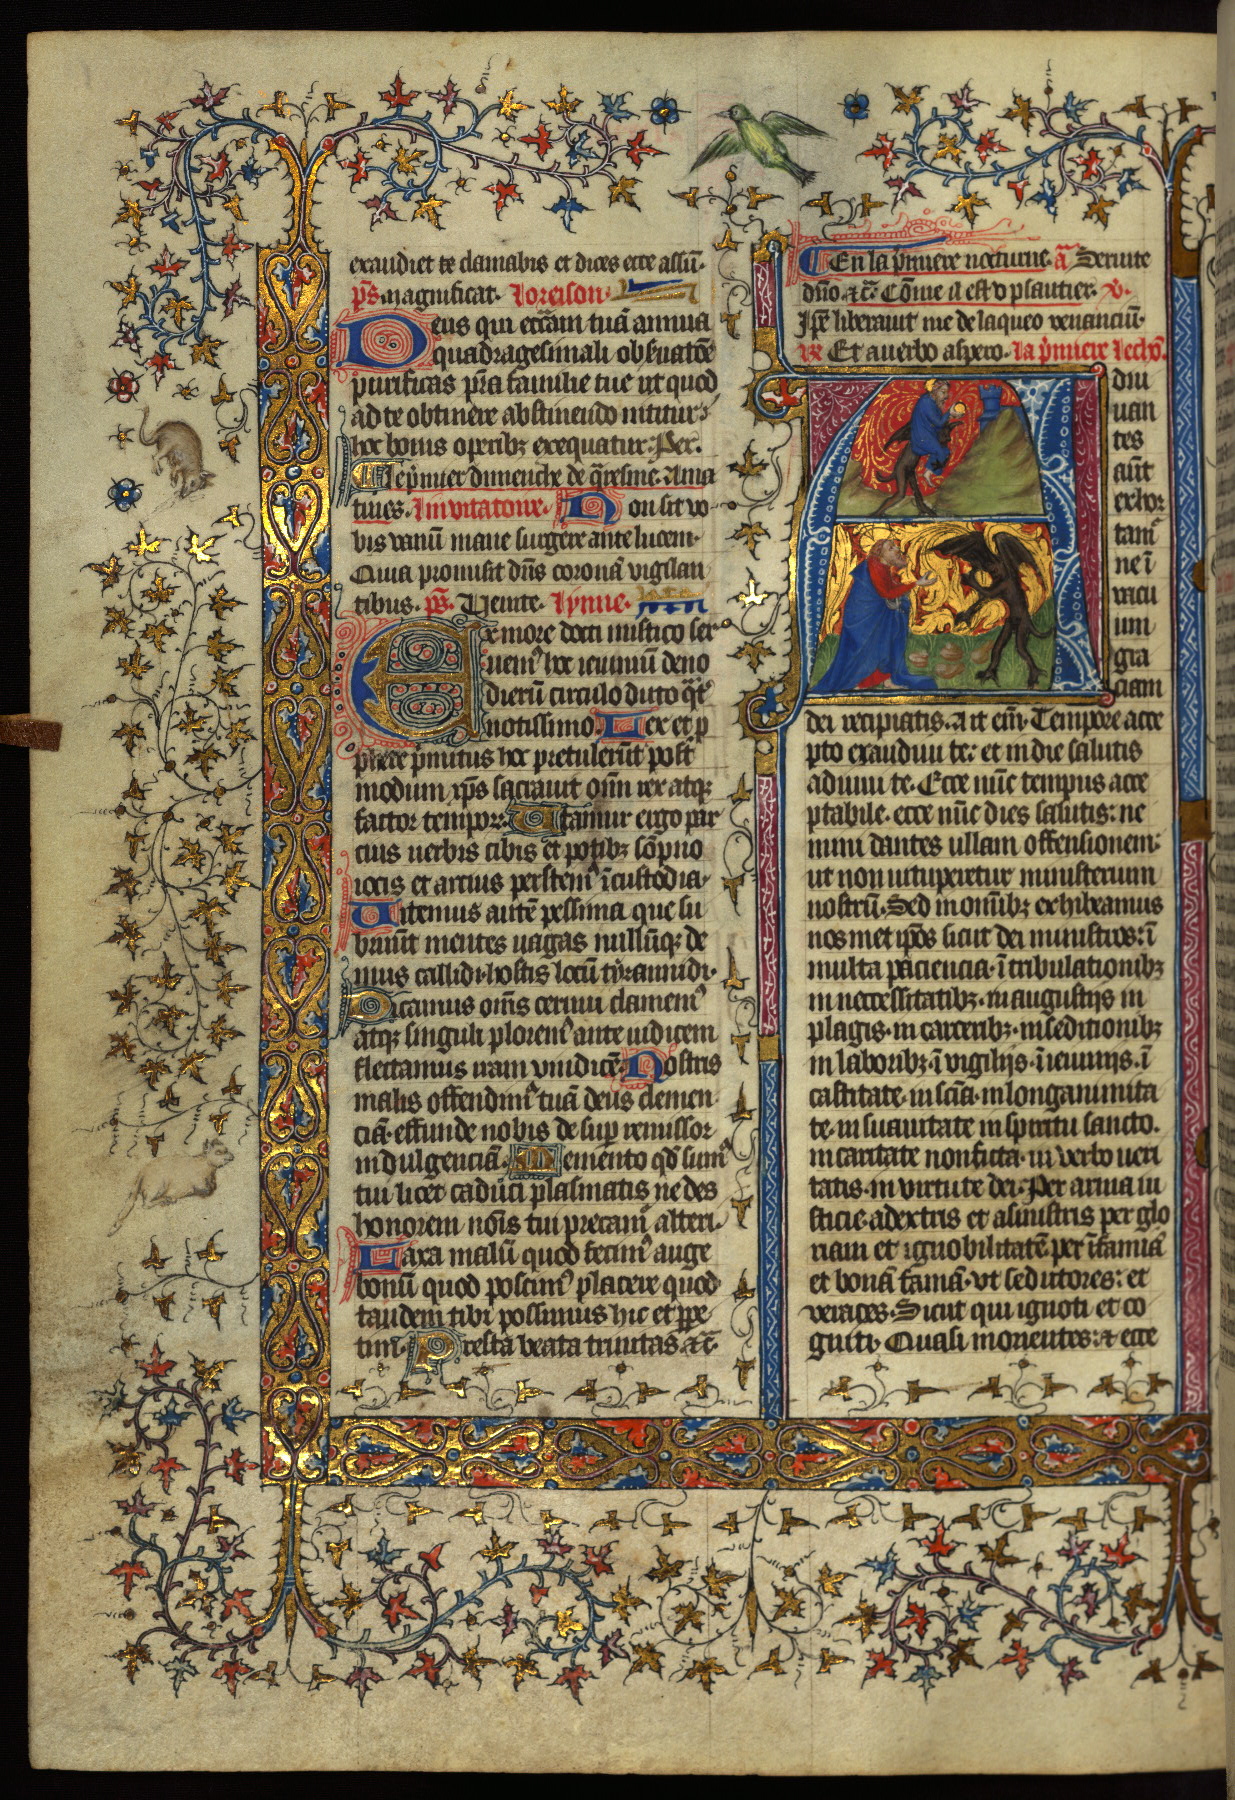 exaudiet te clamabis et dices ecce assū.
ps. magnificat. loreison.
Deus qui eccām tuā annua
quadragesimali obs̄uatōe
purificas p̄ta familie tue ut quod
ad te obtinere abstinendo nititur
hoc bonis operibꝫ exequatur. Per.
Le p̄mier dimenche de q̄resme. A ma
tines. Invitatoire. Non sit vo
bis vanū mane surgere ante lucem.
Quia promisit dn̄s coronā vigilan
tibus. ps. Venite. lymne.
Ex more docti mistico ser
uemꝰ hoc ieiuniū deno
dierū circulo ducto q̄tꝰ
notissimo. Lex et p
phete p̄mitus hoc pretulerūt post
modum xp̄s sacrauit om̄ rex atqꝫ
factor tempoꝝ. Utamur ergo par
cius uerbis cibis et potibꝫ sōpno
iocis et arcius perstemꝰ ī custodia.
Uitemus autē pessima que su
bruūt mentes uagas nullūqꝫ de
mus callidi hostis locū tyrannidi.
Dicamus om̄s cernui clamemꝰ
atqꝫ singuli ploremꝰ ante iudicem
flectamus iram vindicē. Nostris
malis offendimꝰ tuā deus clemen
ciā effunde nobis desuꝑ remissor
indulgenciā. Memento qd̄ sumꝰ
tui licet caduci plasmatis ne des
honorem nōis tui precamꝰ alteri.
Laxa malū quod fecimꝰ auge
bonū quod poscimꝰ placere quod
tandem tibi possimus hic et ꝑpe
tim. Presta beata trinitas. ⁊c̄.
En la p̄miere nocturne. ā. Seruite
dn̄o. ⁊c̄. Cōme il est v psautier. v.
Ip̄e liberauit me de laqueo venanciū.
R. Et a uerbo aspero. la p̄miere lecho.
Adiu
uan
tes
aūt
exhor
tamꝰ
ne ī
vacu
um
gra
ciam
dei recipiatis. Ait eī. Tempore acce
pto exaudiui te: et in die salutis
adiuui te. Ecce nūc tempus acce
ptabile. ecce nūc dies salutis: ne
mini dantes ullam offensionem:
ut non uituperetur ministerium
nostrū. Sed in om̄ibꝫ exhibeamus
nosmet ip̄os sicut dei ministros: ī
multa paciencia. ī tribulationibꝫ
in necessitatibꝫ. in augustijs in
plagis. in carceribꝫ. in seditionibꝫ
in laboribꝫ. ī vigilijs. ī ieiunijs. ī
castitate. in sciā. in longanimita
te. in suauitate in spiritu sancto.
in caritate non ficta. in verbo ueri
tatis. in virtute dei. Per arma iu
sticie. a dextris et a sinistris per glo
riam et ignobilitatē per īfamiā
et bonā famā. vt seductores: et
veraces. Sicut qui ignoti et co
gniti. Quasi morientes: ⁊ ecce